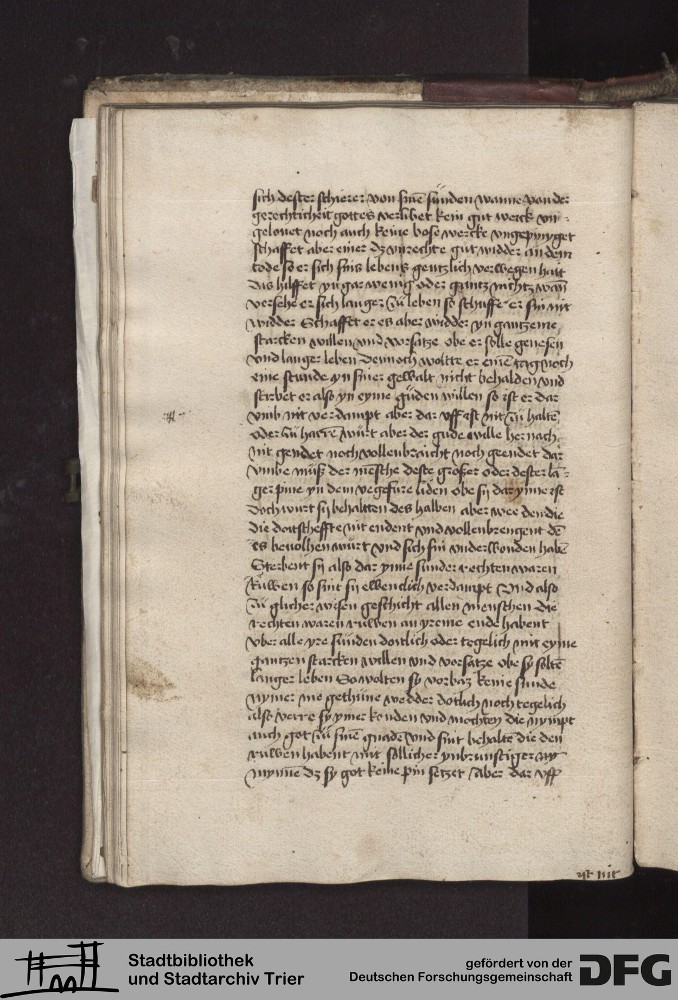 sich dester schierer von sinē sünden wanne von der
gerechticheit gottes verlibet kein gut werck vn-
gelonet noch auch keine bose wercke vngepyniget
schaffet aber einer dz vnrechte gut widder an dem
tode so er sich sins lebens gentzlich verwegen hait
das hilffet yn gar wenig oder gantz nichtz wan̄
versehe er sich langer zü leben so schuffe er sin nit
widder Schaffet er es aber widder yn gantzeme
starcken willen vnd vorsatze obe er solle genesen
vnd langer leben Dennoch woltte er einē tag noch
eine stunde yn siner gewalt nicht behalden vnd
stirbet er also yn eyme güden willen so ist er dar
vmb nit verdampt aber dar vff ist nit zü haltē
oder zü harrē würt aber der gude wille her nach
nit gendet noch vollenbraicht noch geendet dar
vmbe müß der mēsche deste großer oder dester lā-
ger pine yn dem vegefüre liden obe sij dar ynne ist
Doch würt sij behaltten des halben aber wee den die
die dottscheffte nit endent vnd vollenbrengent dē
es beuolhen würt vnd sich sin vnderwonden habē
Sterbent sij also dar ynne sunder rechten waren
Rüwen so sint sij ewenclich verdampt Vnd also
zü glicher wisen geschicht allen menschen die
rechten waren rüwen an yreme ende habent
vber alle yre sünden doitlich oder tegelich mit eyme
gantzen starcken willen vnd vorsatze obe sy soltē
langer leben So wolten sy vorbaz keine sunde
nymer me gethüne wedder dotlich noch tegelich
also verre sy ymer konden vnd mochten die nympt
auch got zü sinē gnade vnd sint behaltē die den
rüwen habent mit sollicher ynbrunstiger my
mynnē dz sy got keine pin setzet Aber dar vff
Stadtbibliothek
und Stadtarchiv Trier
gefördert von der
Deutschen Forschungsgemeinschaft
DFG